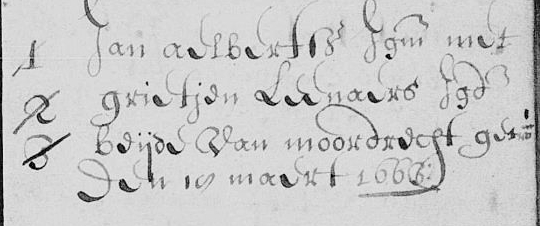 1 Jan aelbertsz Jgm met
2 grietjen Leenders Jgd
3 beijde van moordrecht
den 19 maert 1663: